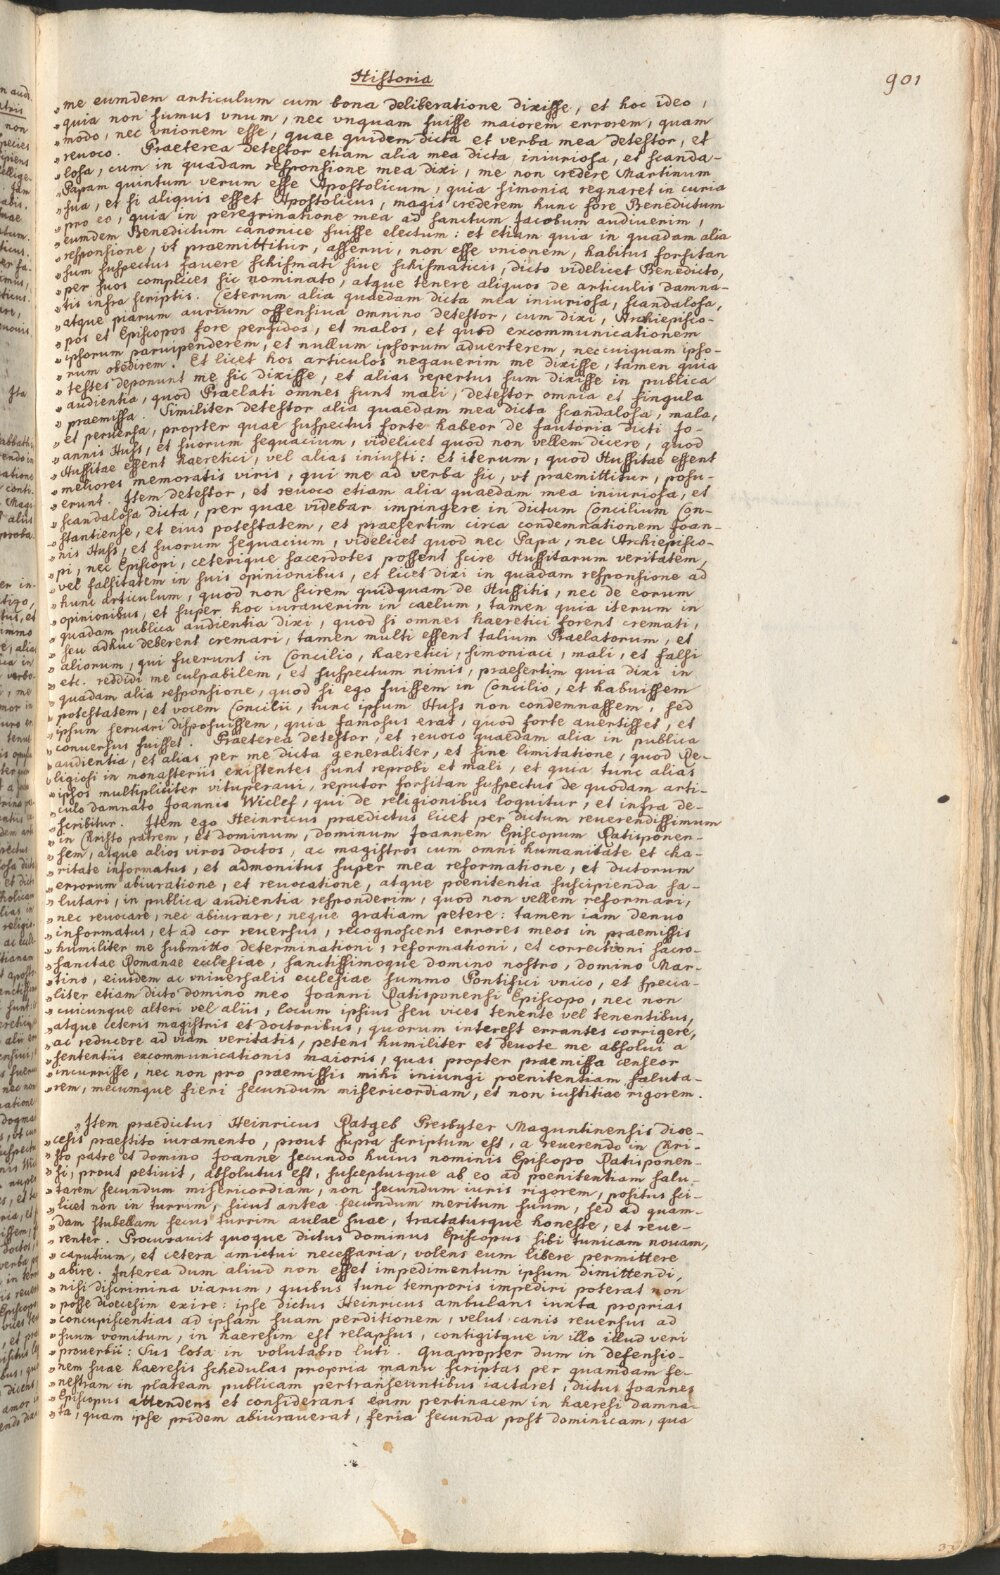 Historia
901
„ me eumdem articulum cum bona deliberatione dixisse, et hoc ideo,
„ quia non sumus vnum, nec vnquam fuisse maiorem errorem, quam
„ modo, nec vnionem esse, quae quidem dicta et verba mea detestor, et
„ reuoco. Praeterea detestor etiam alia mea dicta iniuriosa, et scanda-
„ losa, cum in quadam responsione mea dixi, me non credere Martinum
„ Papam quintum verum esse Apostolicum, quia simonia regnaret in curia
„ sua, et si aliquis esset Apostolicus, magis crederem hunc fore Benedictum
„ pro eo, quia in peregrinatione mea ad sanctum Jacobum audiuerim,
„ eumdem Benedictum canonice fuisse electum: et etiam quia in quadam alia
„ responsione, vt praemittitur, asserui, non esse vnionem, habitus forsitan
„ sum suspectus fauere schismati siue schismaticis, dicto videlicet Benedicto,
„ per suos complices sic nominato, atque tenere aliquos de articulis damna-
„ tis infra scriptis. Ceterum alia quaedam dicta mea iniuriosa, scandalosa,
„ atque piarum aurium offensiua omnino detestor, cum dixi, Archiepisco-
„ pos et Episcopos fore perfidos, et malos, et quod excommunicationem
„ ipsorum paruipenderem, et nullum ipsorum aduerterem, nec cuiquam ipso-
„ rum obedirem. Et licet hos articulos negauerim me dixisse, tamen quia
„ testes deponunt me sic dixisse, et alias repertus sum dixisse in publica
„ audientia, quod Praelati omnes sunt mali, detestor omnia et singula
„ praemissa. Similiter detestor alia quaedam mea dicta scandalosa, mala,
„ et peruersa, propter quae suspectus forte habeor de fautoria dicti Jo-
„ annis Huss, et suorum sequacium, videlicet quod non vellem dicere, quod
„ Hussitae essent haeretici, vel alias iniusti: et iterum, quod Hussitae essent
„ meliores memoratis viris, qui me ad verba sic, vt praemittitur, posu-
„ erunt. Item detestor, et reuoco etiam alia quaedam mea iniuriosa, et
„ scandalosa dicta, per quae videbar impingere in dictum Concilium Con-
„ stantiense, et eius potestatem, et praesertim circa condemnationem Joan-
„ nis Huss, et suorum sequacium, videlicet quod nec Papa, nec Archiepisco-
„ pi, nec Episcopi, ceterique sacerdotes possent scire Hussitarum veritatem,
„ vel falsitatem in suis opinionibus, et licet dixi in quadam responsione ad
„ hunc articulum, quod non scirem quidquam de Hussitis, nec de eorum
„ opinionibus, et super hoc iurauerim in caelum, tamen quia iterum in
„ quadam publica audientia dixi, quod si omnes haeretici forent cremati,
„ seu adhuc deberent cremari, tamen multi essent talium Praelatorum, et
„ aliorum, qui fuerunt in Concilio, haeretici, simoniaci, mali, et falsi
„ etc. reddidi me culpabilem, et suspectum nimis, praesertim quia dixi in
„ quadam alia responsione, quod si ego fuissem in Concilio, et habuissem
„ potestatem, et vocem Concilii, tunc ipsum Huss non condemnassem, sed
„ ipsum seruari disposuissem, quia famosus erat, quod forte auertisset, et
„ conuersus fuisset. Praeterea detestor, et reuoco quaedam alia in publica
„ audientia, et alias per me dicta generaliter, et sine limitatione, quod Re-
„ ligiosi in monasteriis existentes sunt reprobi et mali, et quia tunc alias
„ ipsos multipliciter vituperaui, reputor forsitan suspectus de quodam arti-
„ culo damnato Joannis Wiclef, qui de religionibus loquitur, et infra de-
„ scribitur. Item ego Heinricus praedictus licet per dictum reuerendissimum
„ in Christo patrem, et dominum, dominum Joannem Episcopum Ratisponen-
„ sem, atque alios viros doctos, ac magistros cum omni humanitate et cha-
„ ritate informatus, et admonitus super mea reformatione, et dictorum
„ errorum abiuratione, et reuocatione, atque poenitentia suscipienda sa-
„ lutari, in publica audientia responderim, quod non vellem reformari,
„ nec reuocare, nec abiurare, neque gratiam petere: tamen iam denuo
„ informatus, et ad cor reuersus, recognoscens errores meos in praemissis
„ humiliter me submitto determinationi, reformationi, et correctioni sacro-
„ sanctae Romanae ecclesiae, sanctissimoque domino nostro, domino Mar-
„ tino, eiusdem ac vniuersalis ecclesiae summo Pontifici vnico, et specia-
„ liter etiam dicto domino meo Joanni Ratisponensi Episcopo, nec non
„ cuicunque alteri vel aliis, locum ipsius seu vices tenente vel tenentibus,
„ atque ceteris magistris et doctoribus, quorum interest errantes corrigere,
„ ac reducere ad viam veritatis, petens humiliter et deuote me absolui a
„ sententiis excommunicationis maioris, quas propter praemissa censeor
„ incurrisse, nec non pro praemissis mihi iniungi poenitentiam saluta-
„ rem, mecumque fieri secundum misericordiam, et non iustitiae rigorem.
„ Item praedictus Heinricus Ratgeb Presbyter Maguntinensis dioe-
„ cesis praestito iuramento, prout supra scriptum est, a reuerendo in Chri-
„ sto patre et domino Joanne secundo huius nominis Episcopo Ratisponen-
„ si, prout petiuit, absolutus est, susceptusque ab eo ad poenitentiam salu-
„ tarem secundum misericordiam, non secundum iuris rigorem, positus sci-
„ licet non in turrim, sicut antea secundum meritum suum, sed ad quam-
„ dam stubellam secus turrim aulae suae, tractatusque honeste, et reue-
„ renter. Procurauit quoque dictus dominus Episcopus sibi tunicam nouam,
„ caputium, et cetera amictui necessaria, volens eum libere permittere
„ abire. Interea dum aliud non esset impedimentum ipsum dimittendi,
„ nisi discrimina viarum, quibus tunc temporis impediri poterat non
„ posse dioecesim exire: ipse dictus Heinricus ambulans iuxta proprias
„ concupiscentias ad ipsam suam perditionem, velut canis reuersus ad
„ suum vomitum, in haeresim est relapsus, contigitque in illo illud veri
„ prouerbii: Sus lota in volutabro luti. Quapropter dum in defensio-
„ nem suae haeresis schedulas propria manu scriptas per quamdam fe-
„ nestram in plateam publicam pertranseuntibus iactaret, dictus Joannes
„ Episcopus attendens et considerans eum pertinacem in haeresi damna-
„ ta, quam ipse pridem abiurauerat, feria secunda post dominicam, qua